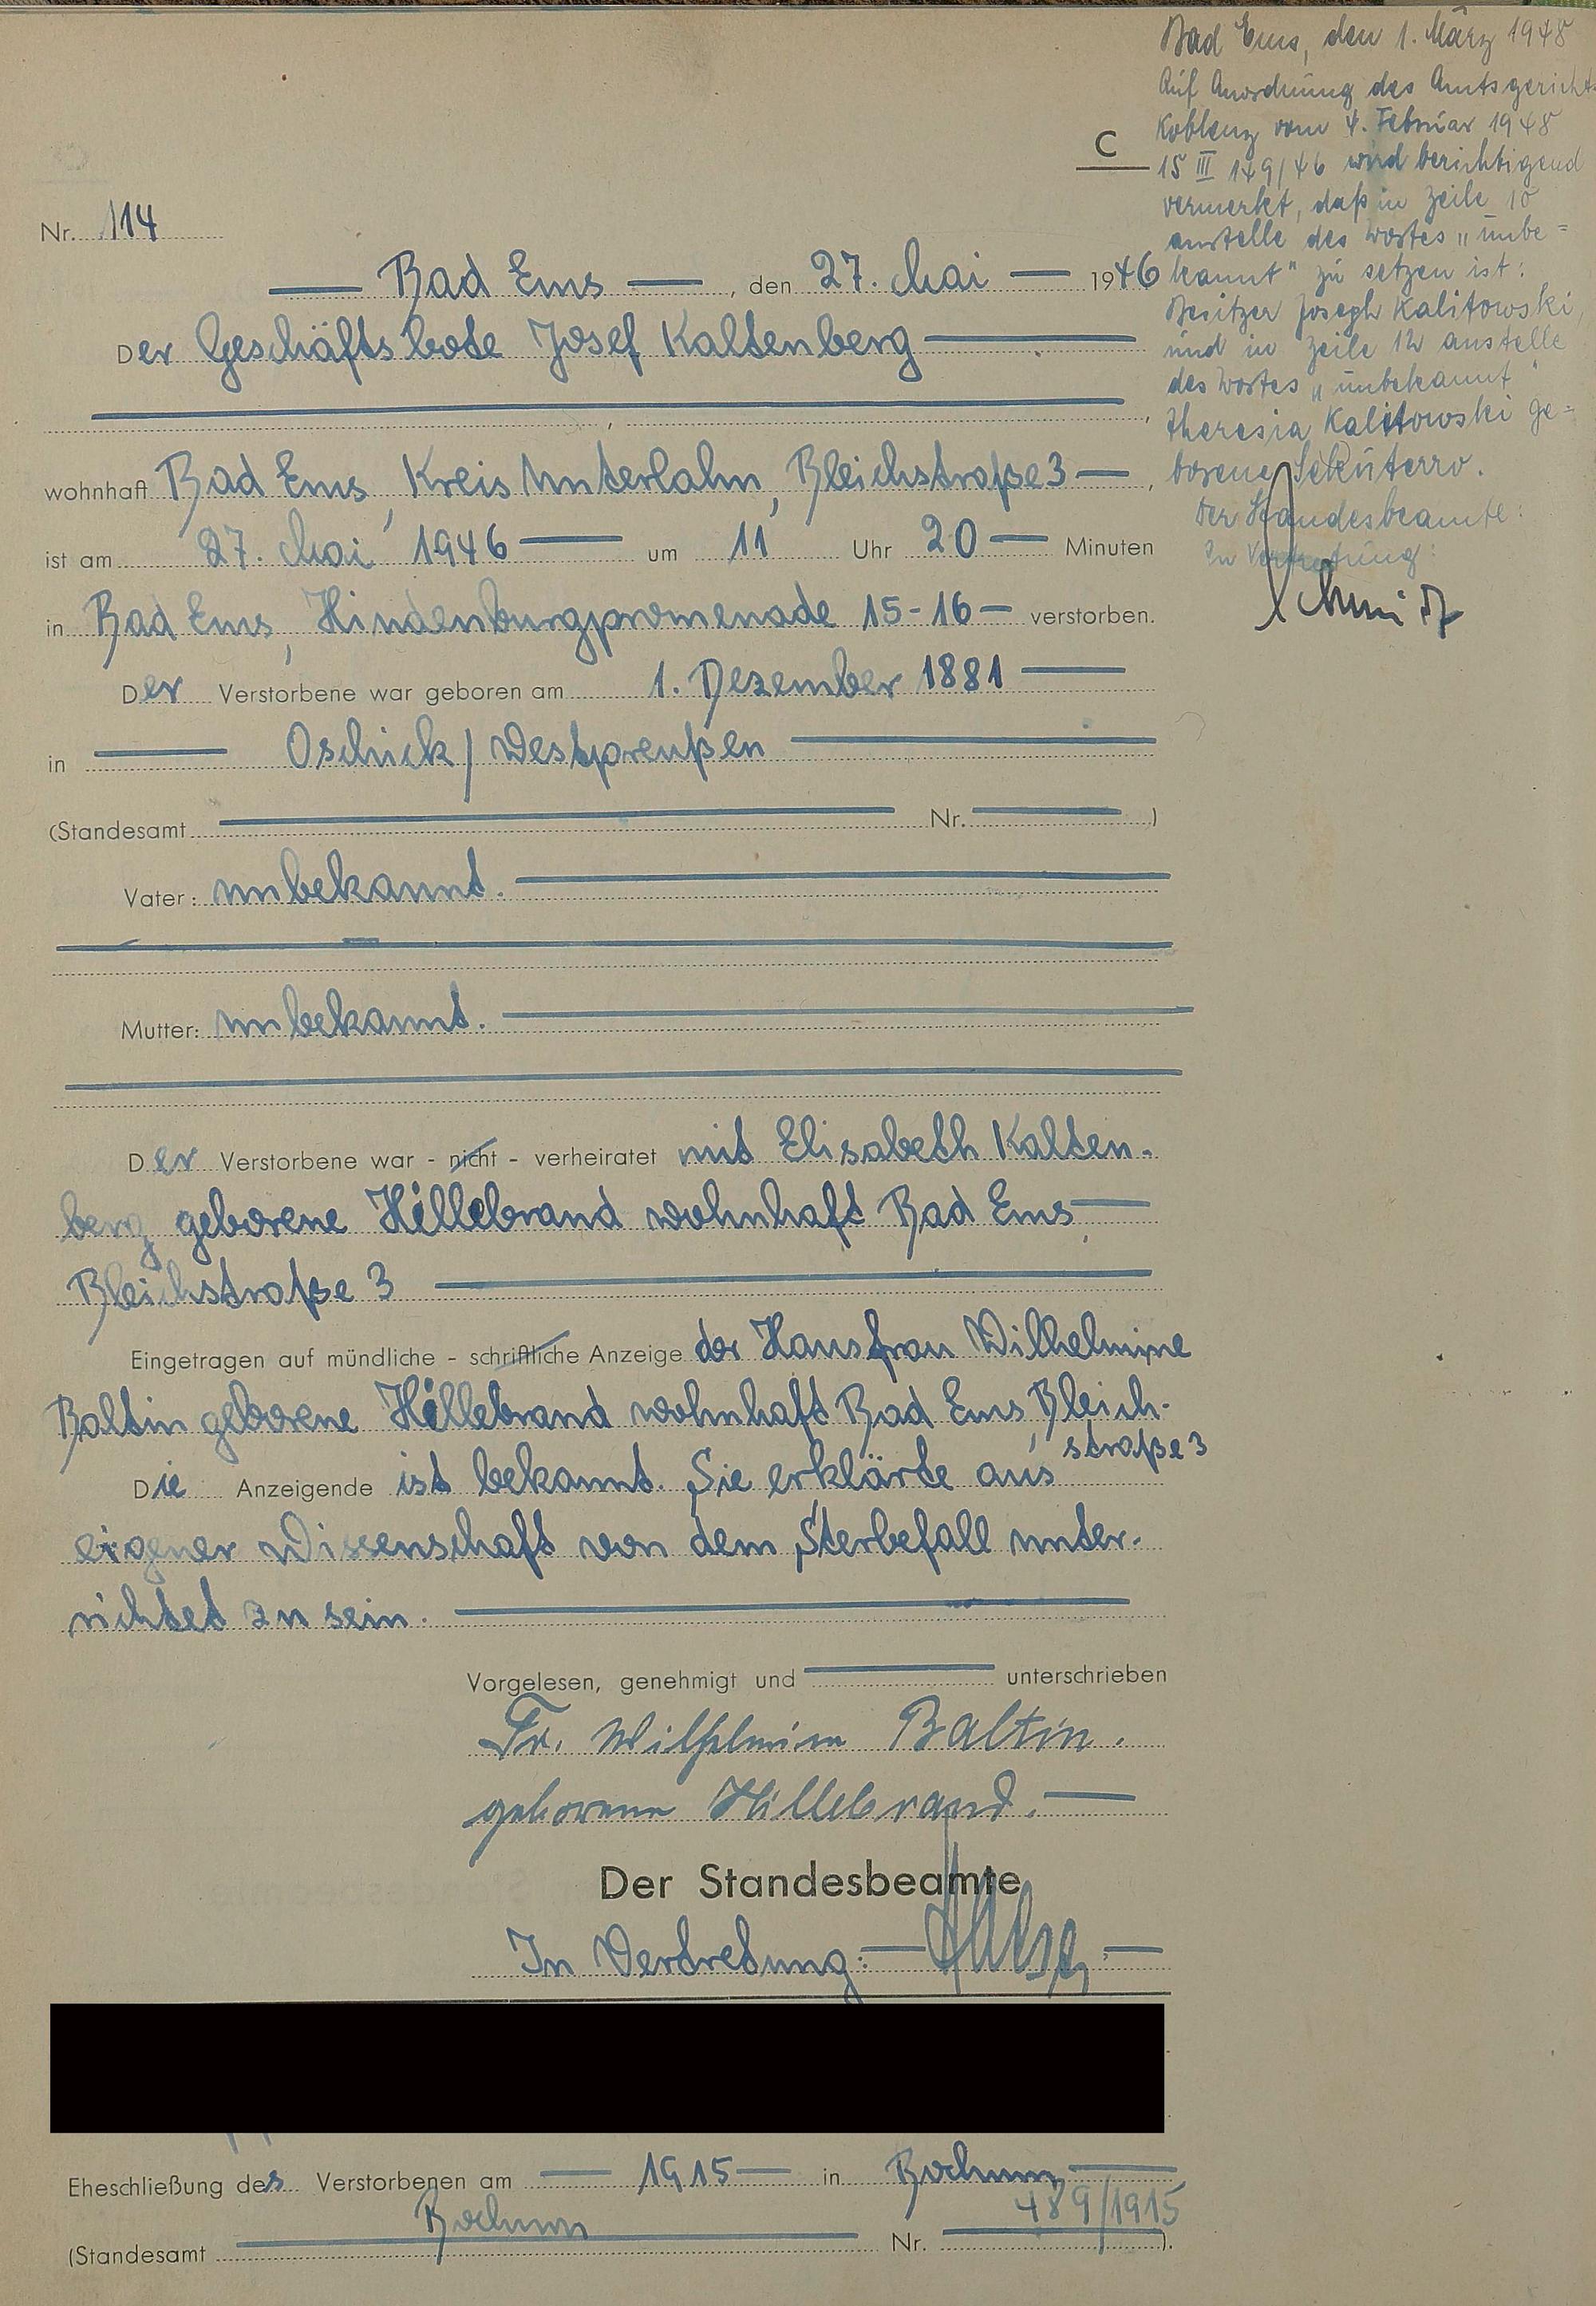 C
Nr. 114
Bad Ems, den 27. Mai 1946
Der Geschäftsbote Josef Kaltenberg
wohnhaft Bad Ems, Kreis Unterlahn, Bleichstraße 3,
ist am 27. Mai 1946 um 11 Uhr 20 Minuten
in Bad Ems, Hindenburgpromenade 15-16 verstorben.
Der Verstorbene war geboren am 1. Dezember 1881
in Oschick/Westpreußen
(Standesamt Nr. )
Vater: unbekannt.
Mutter: unbekannt.
Der Verstorbene war - nicht - verheiratet mit Elisabeth Kalten-
berg geborene Hillebrand wohnhaft Bad Ems,
Bleichstraße 3
Eingetragen auf mündliche - schriftliche Anzeige der Hausfrau Wilhelmine
Baltin geborene Hillebrand wohnhaft Bad Ems, Bleich-
straße 3
Die Anzeigende ist bekannt. Sie erklärte aus
eigener Wissenschaft von dem Sterbefall unter-
richtet zu sein.
Vorgelesen, genehmigt und unterschrieben
Fr. Wilhelmine Baltin.
geborene Hillebrand.
Der Standesbeamte
In Vertretung:
Eheschließung des Verstorbenen am 1915 in Bochum
(Standesamt Bochum Nr. 489/1915).
Bad Ems, den 1. März 1948
Auf Anordnung des Amtsgerichts
Koblenz vom 4. Februar 1948
15 III 149/46 wird berichtigend
vermerkt, daß in Zeile 10
anstelle des Wortes "unbe=
kannt" zu setzen ist:
Besitzer Joseph Kalitowski,
und in Zeile 12 anstelle
des Wortes "unbekannt"
Theresia Kalitowski ge=
borene Sekuterro.
Der Standesbeamte:
In Vertretung:
Schmidt